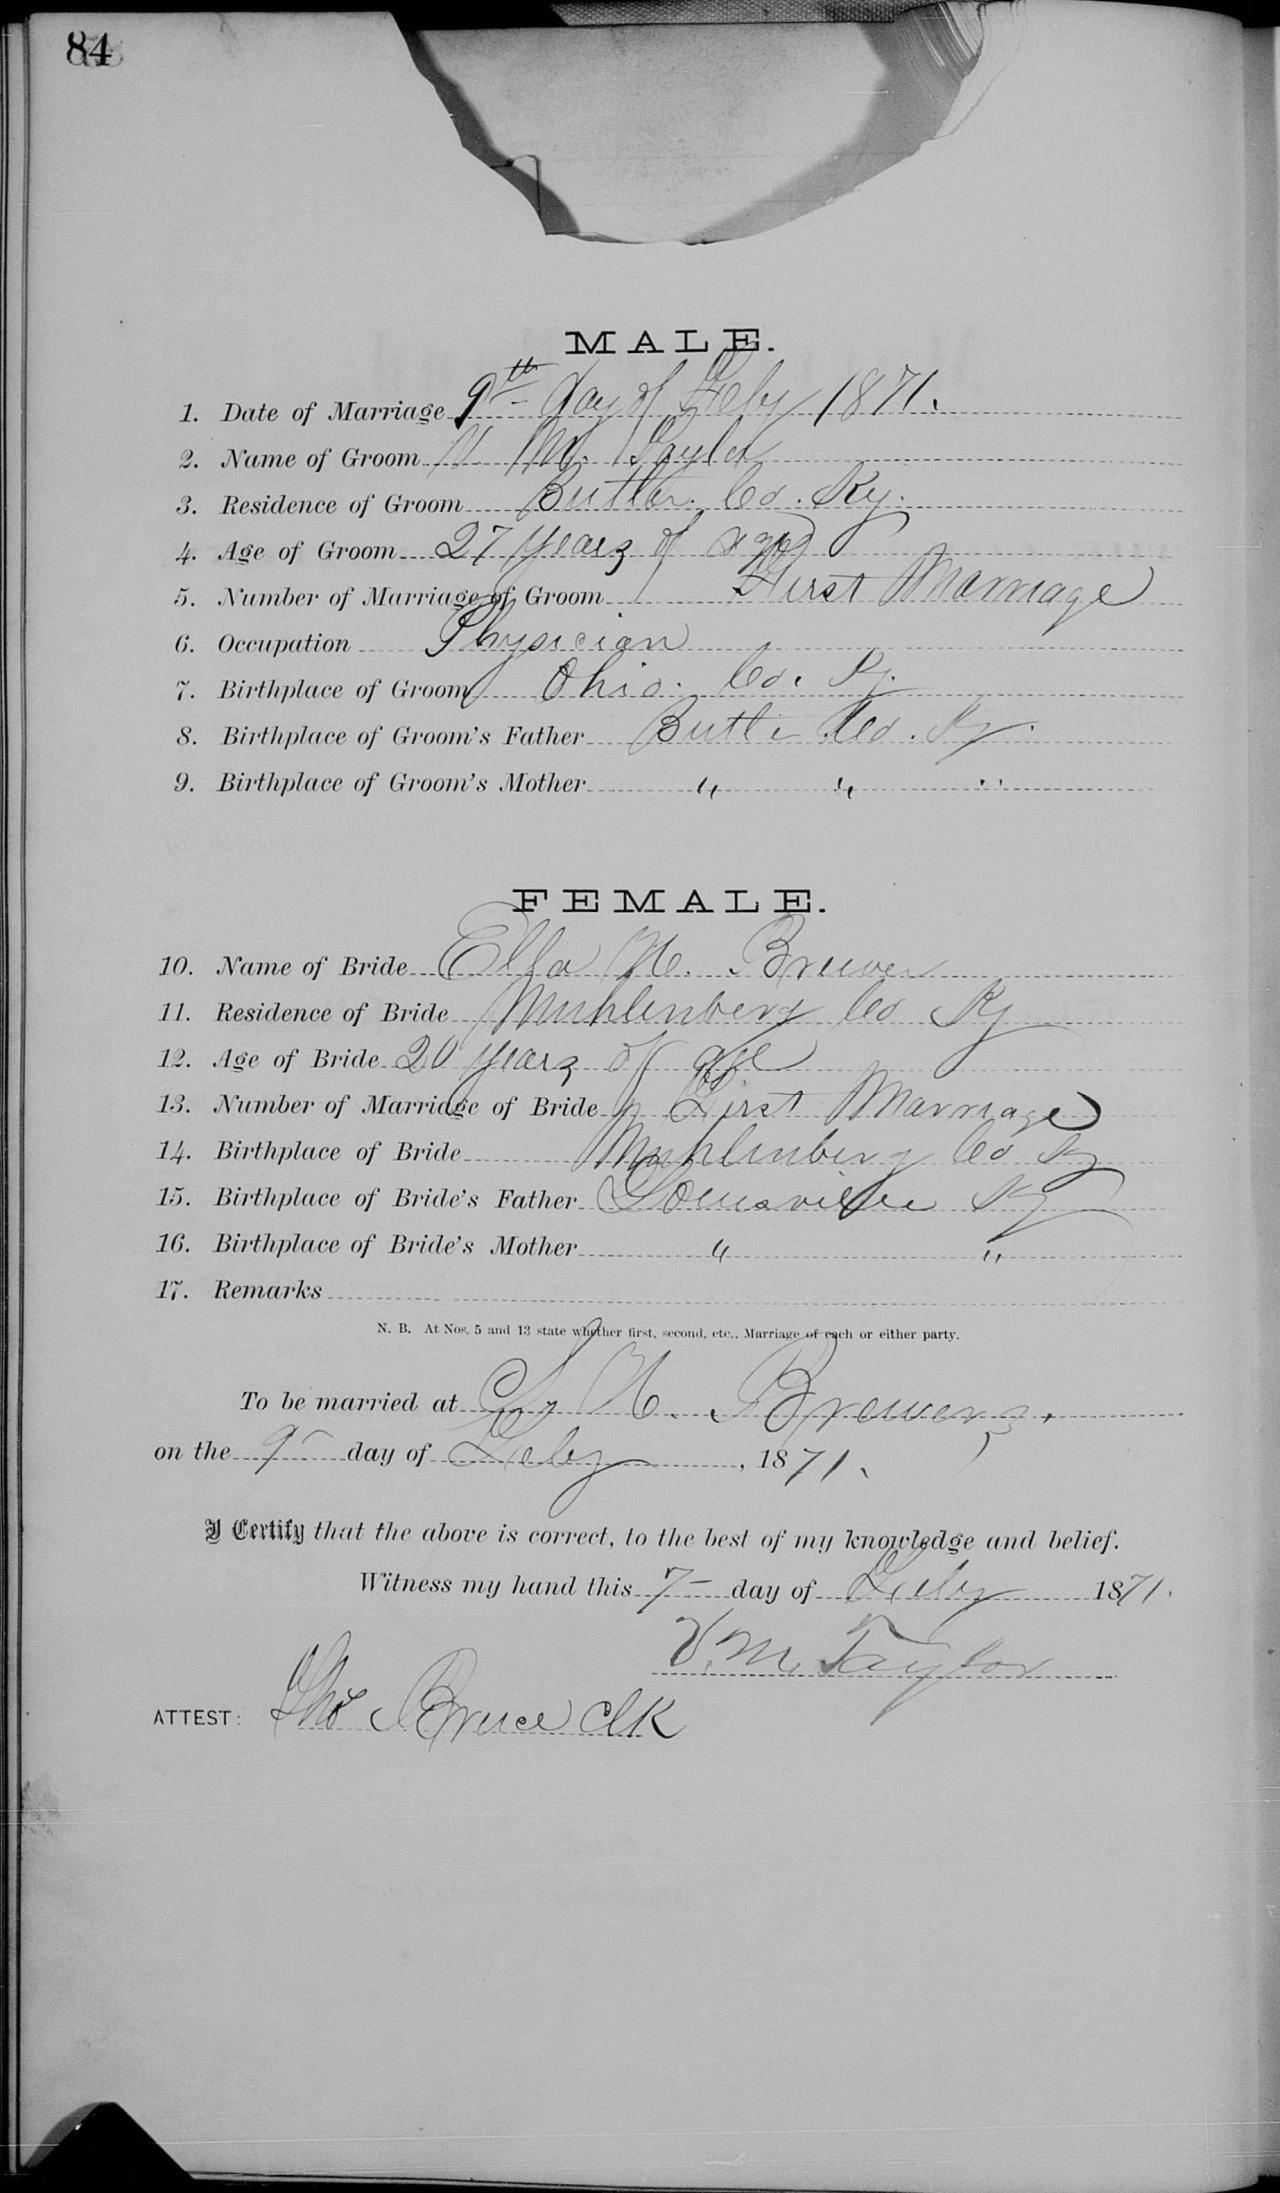 84
MALE.
1. Date of Marriage 9th day of Feby 1871.
2. Name of Groom V. M. Taylor
3. Residence of Groom Butler Co. Ky.
4. Age of Groom 27 years of age
5. Number of Marriage of Groom First Marriage
6. Occupation Physician
7. Birthplace of Groom Ohio. Co. Ky.
8. Birthplace of Groom's Father Butler Co. Ky.
9. Birthplace of Groom's Mother " " "
FEMALE.
10. Name of Bride Ella H. Brewer
11. Residence of Bride Muhlenberg Co Ky
12. Age of Bride 20 years of age
13. Number of Marriage of Bride First Marriage
14. Birthplace of Bride Muhlenberg Co Ky
15. Birthplace of Bride's Father Louisville Ky
16. Birthplace of Bride's Mother " "
17. Remarks
N. B. At Nos. 5 and 13 state whether first, second, etc., Marriage of each or either party.
To be married at H. Brewers.
on the 9 day of Feby, 1871.
I Certify that the above is correct, to the best of my knowledge and belief.
Witness my hand this 7 day of Feby 1871.
V. M. Taylor
ATTEST: Tho Bruce Clk